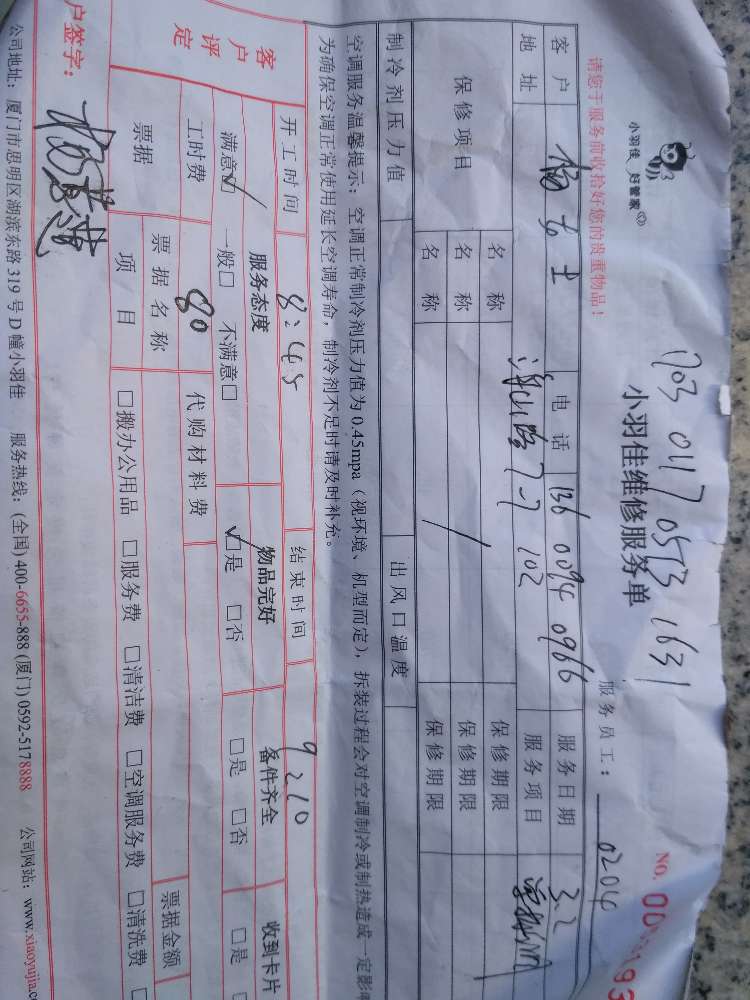 1703 0117 0553 1631
小羽佳 好管家
小羽佳维修服务单
NO.
请您于服务前收拾好您的贵重物品！
服务员工： 0204
客户 杨女士 电话 136 0094 0966 服务日期 3.2
地址 7-7 102 服务项目
保修项目 名称 保修期限
名称 保修期限
名称 保修期限
制冷剂压力值 出风口温度
空调服务温馨提示：空调正常制冷剂压力值为0.45mpa（视环境、机型而定），拆装过程会对空调制冷或制热造成一定影响
为确保空调正常使用延长空调寿命，制冷剂不足时请及时补充。
开工时间 8:45 结束时间 9:10
客户评定 服务态度 物品完好 备件齐全 收到卡片
满意☑ 一般□ 不满意□ ☑是 □否 □是 □否 □是
工时费 80 代购材料费
票据 票据名称 票据金额
项目 □搬办公用品 □服务费 □清洁费 □空调服务费 □清洗费
户签字：
公司地址：厦门市思明区湖滨东路319号D幢小羽佳 服务热线：(全国) 400-6655-888 (厦门) 0592-5178888 公司网站：www.xiaoyujia.c